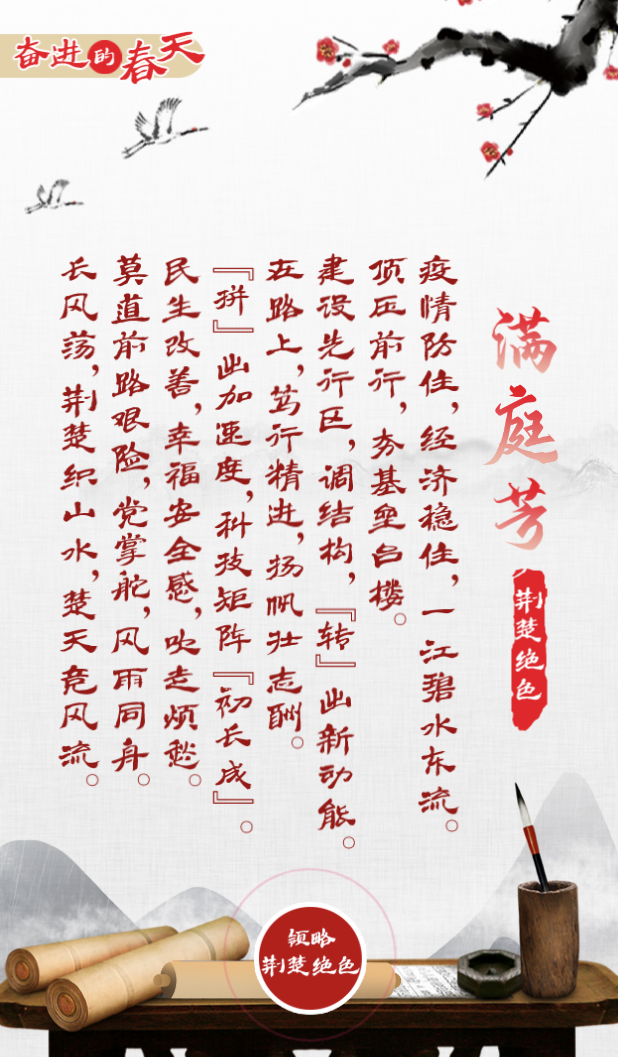 奋进的春天
满庭芳
荆楚绝色
疫情防住，经济稳住，一江碧水东流。
顶压前行，夯基垒台楼。
建设先行区，调结构，『转』出新动能。
在路上，笃行精进，扬帆壮志酬。
『拼』出加速度，科技矩阵『初长成』。
民生改善，幸福安全感，吹走烦愁。
莫道前路艰险，党掌舵，风雨同舟。
长风荡，荆楚织山水，楚天竞风流。
领略
荆楚绝色